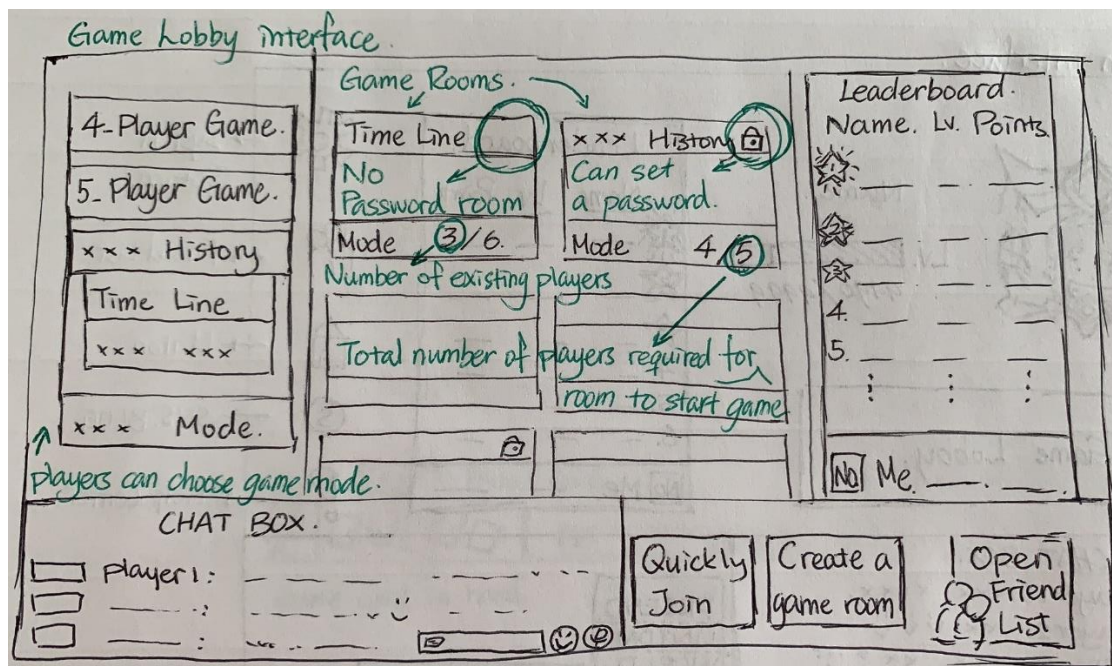 Game Lobby interface.
4-Player Game.
5-Player Game.
xxx History
Time Line
xxx xxx
xxx Mode.
players can choose game mode.
Game Rooms.
Time Line
No
Password room
Mode 3/6.
Number of existing players
xxx History
Can set
a password.
Mode 4/5
Total number of players required for
room to start game
Leaderboard.
Name. Lv. Points.
1
2
3
4.
5.
No Me.
CHAT BOX.
Player1:
Quickly
Join
Create a
game room
Open
Friend
List